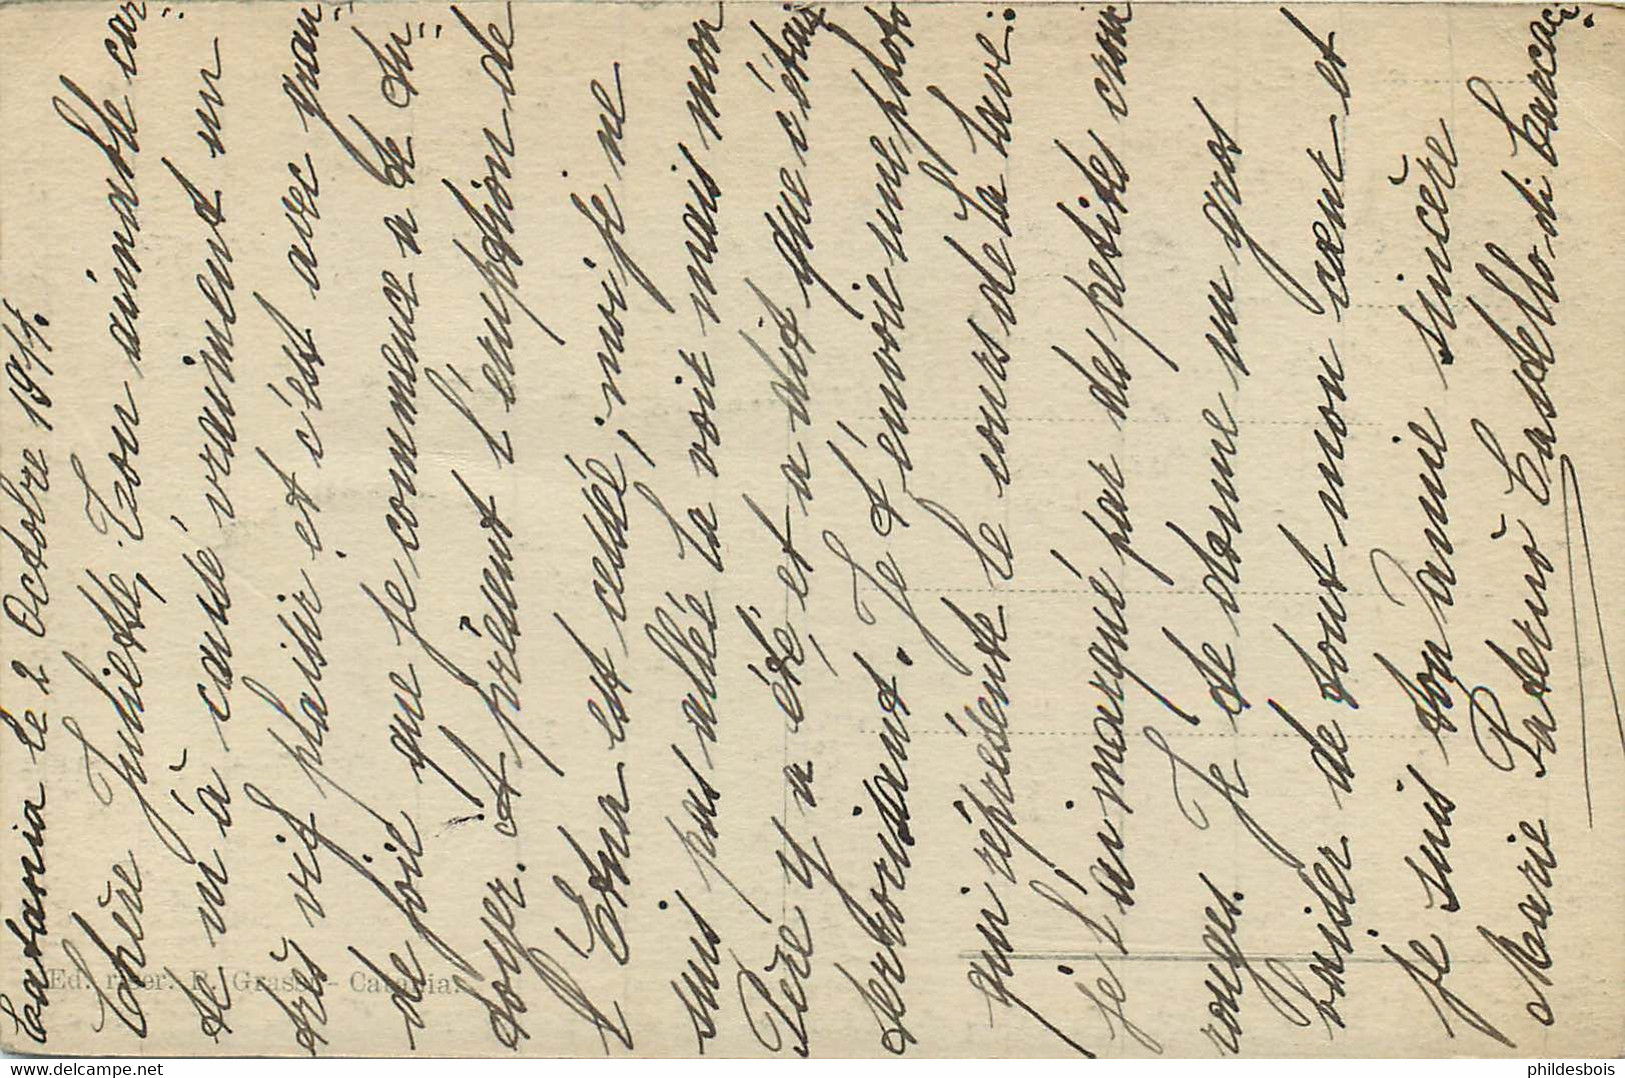 Catania le 2 Octobre 1911.
Chère Juliette, Ton aimable car-
te m'a causé vraiment un
très vif plaisir et c'est avec gran-
de joie que je commence à te tu-
toyer. A présent l'eruption de
l'Etna est cessée, moi je ne
suis pas allée la voir mais mon
Père y a été, et a dit que c'était
terrorisant. Je t'envoie une photo
qui réprésente le cours de la lave:
je l'ai marqué par des petites croix
rouges. Je te donne un gros
baiser de tout mon cœur et
je suis ton amie sincère
Marie Paternò Castello di Carcaci.
Ed. riser. R. Grassi - Catania.
phildesbois
delcampe.net